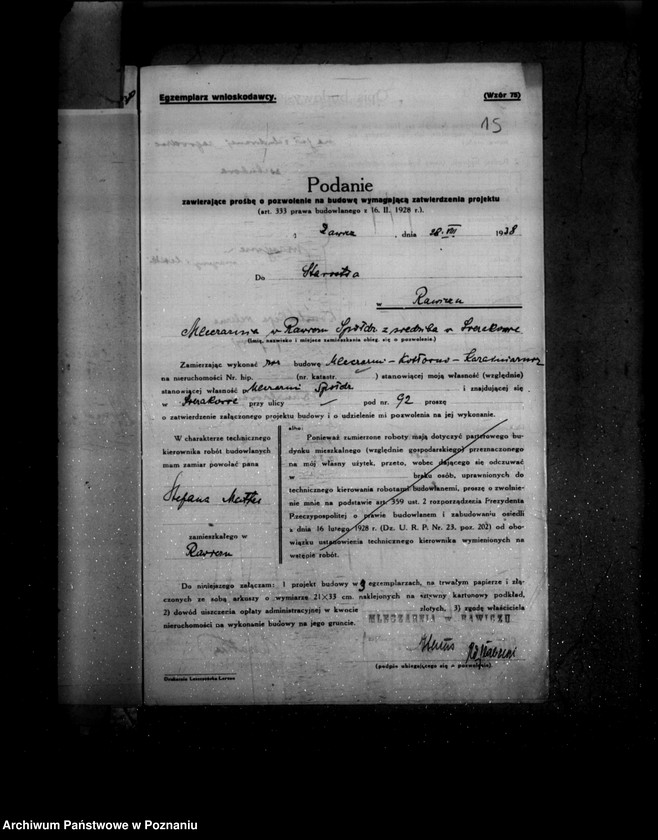 Egzemplarz wnioskodawcy.
(Wzór 75)
15
Podanie
zawierające prośbę o pozwolenie na budowę wymagającą zatwierdzenia projektu
(art. 333 prawa budowlanego z 16. II. 1928 r.).
, dnia 28. VII 1938
Do Starosta
w Rawiczu
Mleczarnia w Spółdz z siedzibą w
(Imię, nazwisko i miejsce zamieszkania ubieg. się o pozwolenie.)
Zamierzając wykonać budowę Mleczarni - Kotłowni -
na nieruchomości Nr. hip. (nr. katastr. ) stanowiącej moją własność (względnie)
stanowiącej własność Mleczarni Spółdz i znajdującej się
w przy ulicy — pod nr. 92 proszę
o zatwierdzenie załączonego projektu budowy i o udzielenie mi pozwolenia na jej wykonanie.
W charakterze technicznego
kierownika robót budowlanych
mam zamiar powołać pana
Stefana
w
zamieszkałego w
albo:
Ponieważ zamierzone roboty mają dotyczyć parterowego bu-
dynku mieszkalnego (względnie gospodarskiego) przeznaczonego
na mój własny użytek, przeto, wobec dającego się odczuwać
w braku osób, uprawnionych do
technicznego kierowania robotami budowlanemi, proszę o zwolnie-
nie mnie na podstawie art. 359 ust. 2 rozporządzenia Prezydenta
Rzeczypospolitej o prawie budowlanem i zabudowaniu osiedli
z dnia 16 lutego 1928 r. (Dz. U. R. P. Nr. 23, poz. 202) od obo-
wiązku ustanowienia technicznego kierownika wymienionych na
wstępie robót.
Do niniejszego załączam: 1 projekt budowy w 3 egzemplarzach, na trwałym papierze i złą-
czonych ze sobą arkuszy o wymiarze 21×33 cm. naklejonych na sztywny kartonowy podkład,
2) dowód uiszczenia opłaty administracyjnej w kwocie złotych, 3) zgodę właściciela
nieruchomości na wykonanie budowy na jego gruncie.
MLECZARNIA w RAWICZU
(podpis ubiegającego się o pozwolenie)
Drukarnia Leszczyńska-Leszno
Archiwum Państwowe w Poznaniu